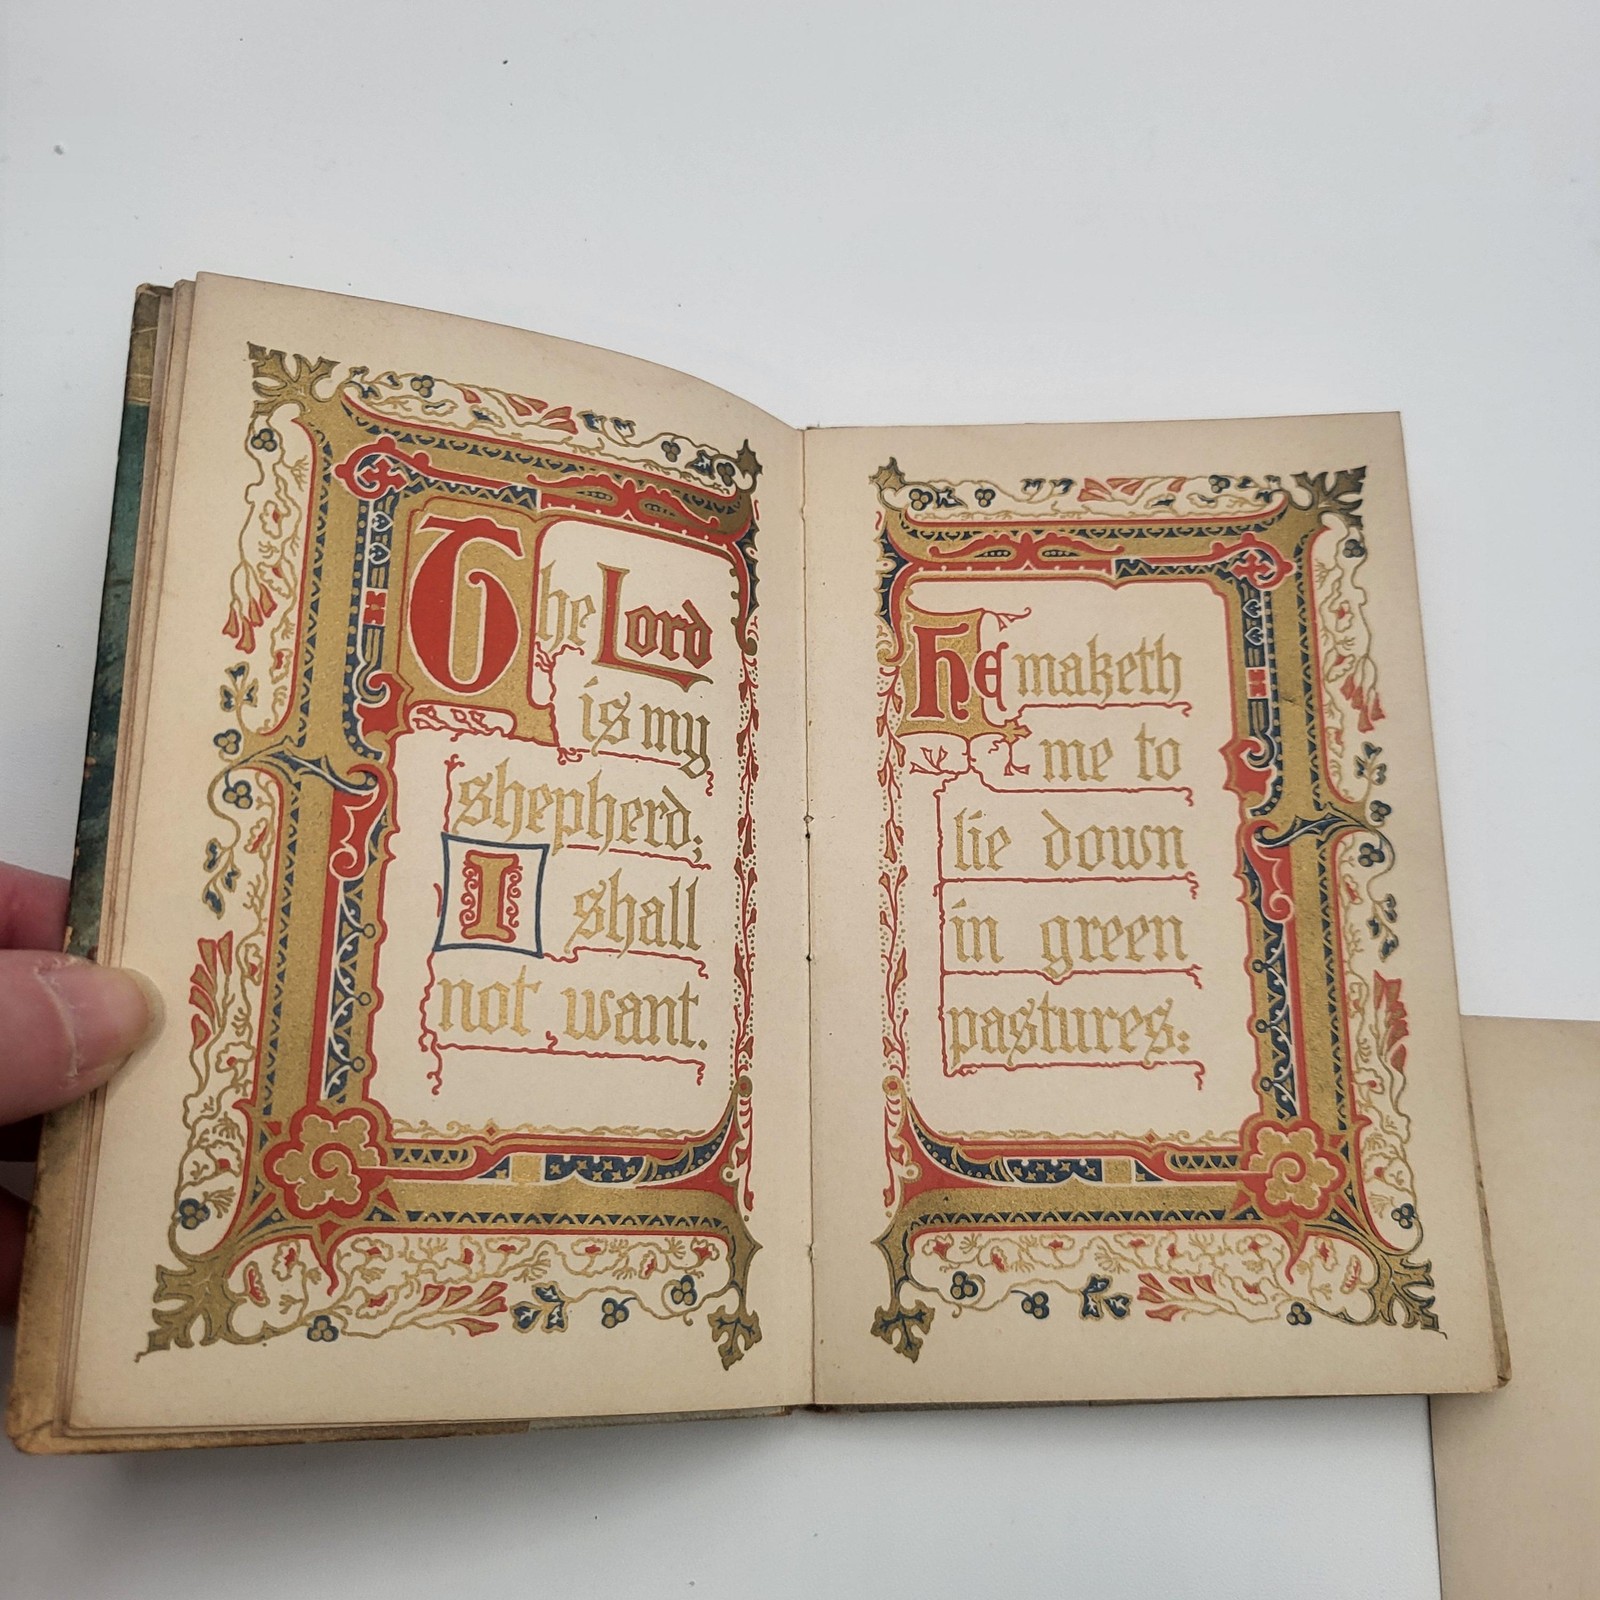 The Lord
is my
shepherd;
I shall
not want.
He maketh
me to
lie down
in green
pastures: